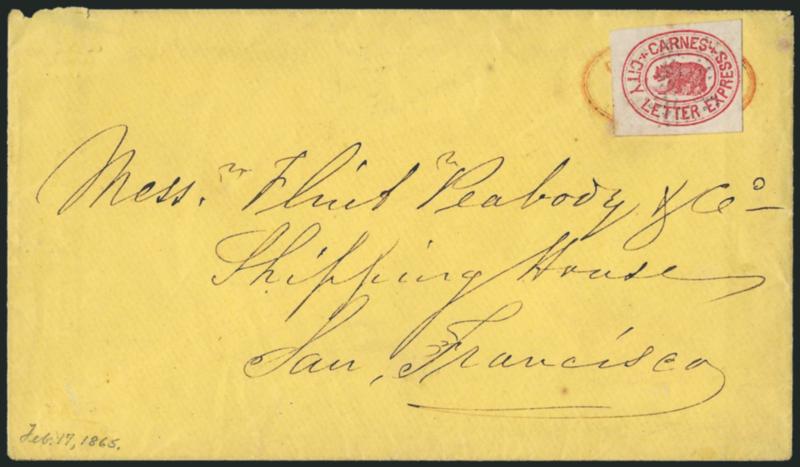 CARNES
CITY LETTER EXPRESS
Mess.rs Flint Peabody & Co
Shipping House
San, Francisco
Feb. 17, 1865.